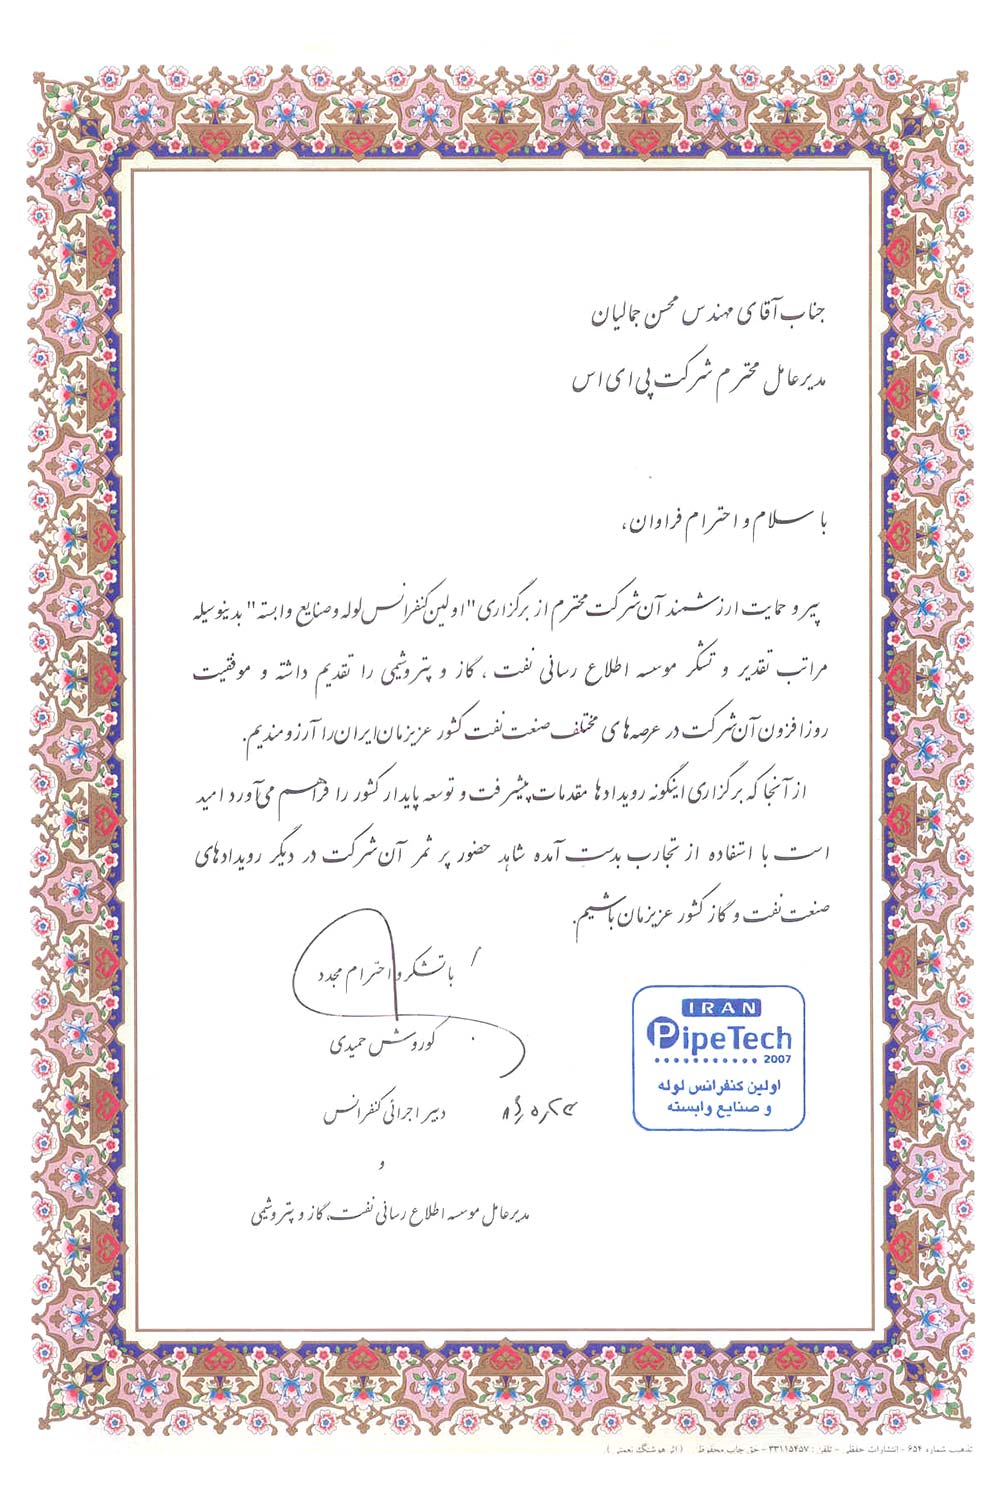 جناب آقای مهندس محسن جمالیان
مدیرعامل محترم شرکت پی ای اس
با سلام و احترام فراوان،
پیرو حمایت ارزشمند آن شرکت محترم از برگزاری "اولین کنفرانس لوله و صنایع وابسته" بدینوسیله
مراتب تقدیر و تشکر موسسه اطلاع رسانی نفت ، گاز و پتروشیمی را تقدیم داشته و موفقیت
روزافزون آن شرکت در عرصه های مختلف صنعت نفت کشور عزیزمان ایران را آرزومندیم.
از آنجا که برگزاری اینگونه رویدادها مقدمات پیشرفت و توسعه پایدار کشور را فراهم می آورد امید
است با استفاده از تجارب بدست آمده شاهد حضور پر ثمر آن شرکت در دیگر رویدادهای
صنعت نفت و گاز کشور عزیزمان باشیم.
با تشکر و احترام مجدد
کوروش حمیدی
دبیر اجرائی کنفرانس
و
مدیرعامل موسسه اطلاع رسانی نفت، گاز و پتروشیمی
IRAN
PipeTech
2007
اولین کنفرانس لوله
و صنایع وابسته
تذهیب شماره ۶۵۴ - انتشارات حفظی - تلفن : ۳۳۱۱۵۴۵۷ - حق چاپ محفوظ (اثر هوشنگ نعمتی)